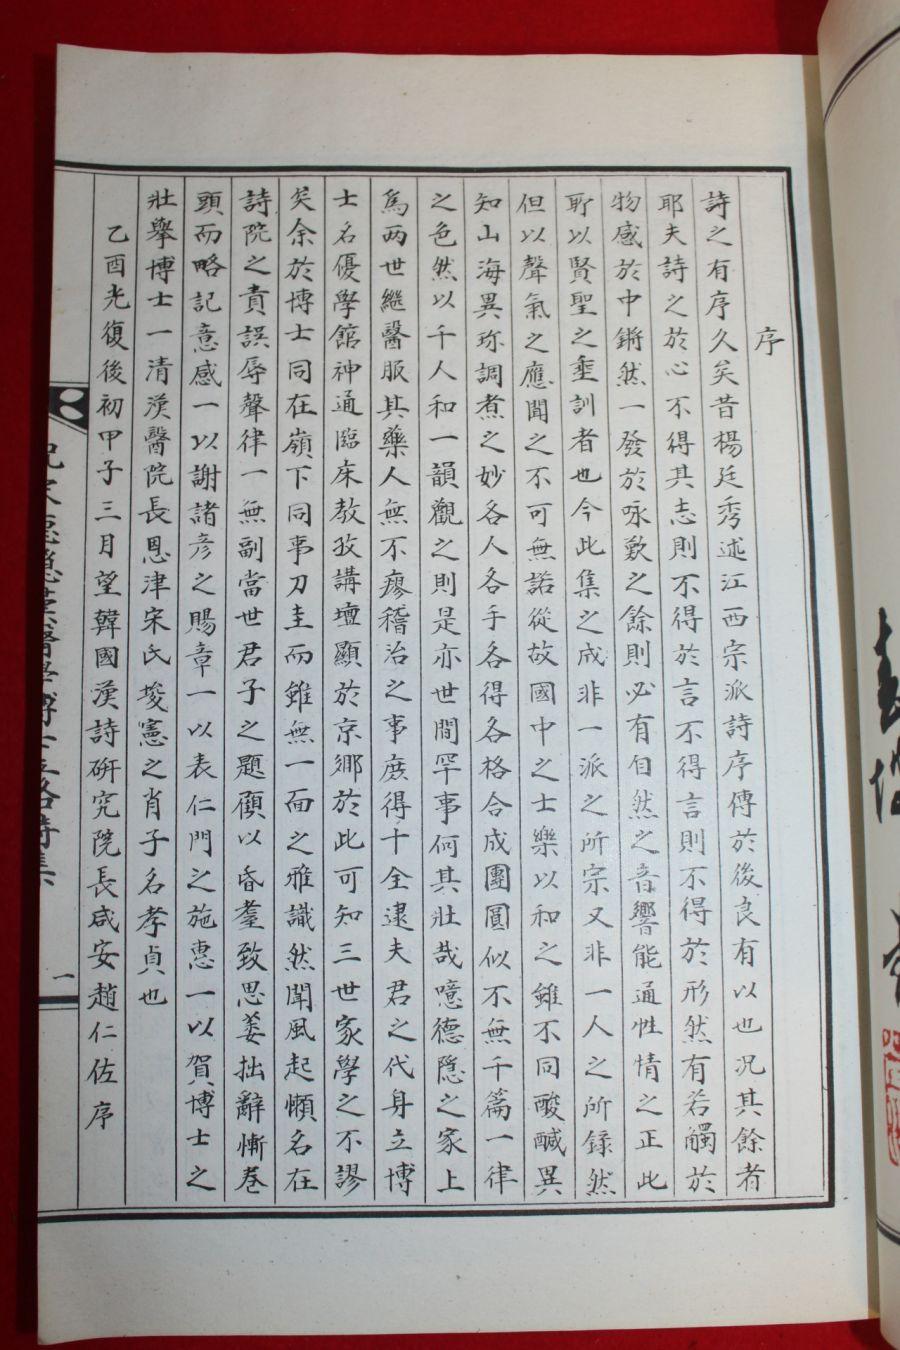 序
詩之有序久矣昔楊廷秀述江西宗派詩序傳於後良有以也况其餘者
耶夫詩之於心不得其志則不得於言不得言則不得於形然有若觸於
物感於中鏘然一發於咏歎之餘則必有自然之音響能通性情之正此
所以賢聖之垂訓者也今此集之成非一派之所宗又非一人之所錄然
但以聲氣之應聞之不可無諾從故國中之士樂以和之雖不同酸醎異
知山海異珍調煮之妙各人各手各得各格合成團圓似不無千篇一律
之色然以千人和一韻觀之則是亦世間罕事何其壯哉噫德隐之家上
爲两世継醫服其藥人無不瘳稽治之事庶得十全逮夫君之代身立博
士名優學館神通臨床教孜講壇顯於京鄉於此可知三世家學之不謬
矣余於博士同在嶺下同事刀圭而雖無一面之雅識然聞風起懶名在
詩院之責誤辱聲律一無副當世君子之題願以昏耋致思萎拙辭慚卷
頭而略記意感一以謝諸彦之賜章一以表仁門之施惠一以賀博士之
壯擧博士一清漢醫院長恩津宋氏埈憲之肖子名孝貞也
乙酉光復後初甲子三月望韓國漢詩硏究院長咸安趙仁佐序
一